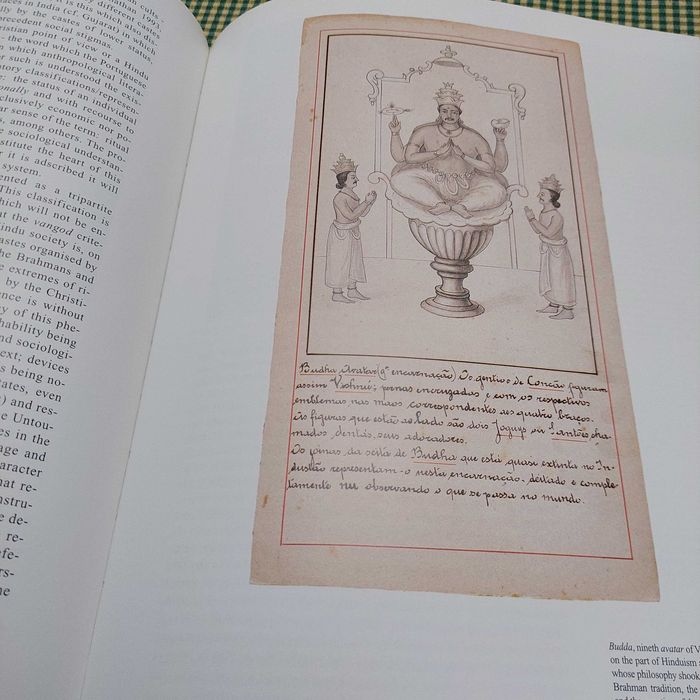 cults -
different castes
in India (cf. Gujarat) in 1991,
by the castes of lower status,
precedent social stigmas.
Christian point of view or a Hindu
- the word which the Portuguese
which anthropological litera-
such is understood the exis-
classifications/represen-
the status of an individual
and with recourse to
exclusively economic nor po-
sense of the term: ritual
among others. The pro-
sociological understan-
constitute the heart of this
it is adscribed it will
system.
as a tripartite
This classification is
which will not be en-
the vangod crite-
Hindu society is, on
castes organised by
the Brahmans and
extremes of ri-
by the Christi-
is without
of this phe-
being
and sociologi-
text; devices
is being no-
states, even
and res-
the Untou-
in the
and
character
that re-
de-
re-
Budha Avatar (9ª encarnação) Os gentios de Concão figuram
assim Vishnú; pernas encruzadas e com os respectivos
emblemas nas mãos, correspondente aos quatro braços.
As figuras que estão ao lado são dois Joguys ou Santões cha-
mados, dentás, seus adoradores.
Os joinas da seita de Budha que está quasi extinta no In-
dustão representam-o nesta encarnação, deitado e comple-
tamente nu observando o que se passa no mundo.
Budda, nineth avatar of V
on the part of Hinduism
whose philosophy shook
Brahman tradition, the